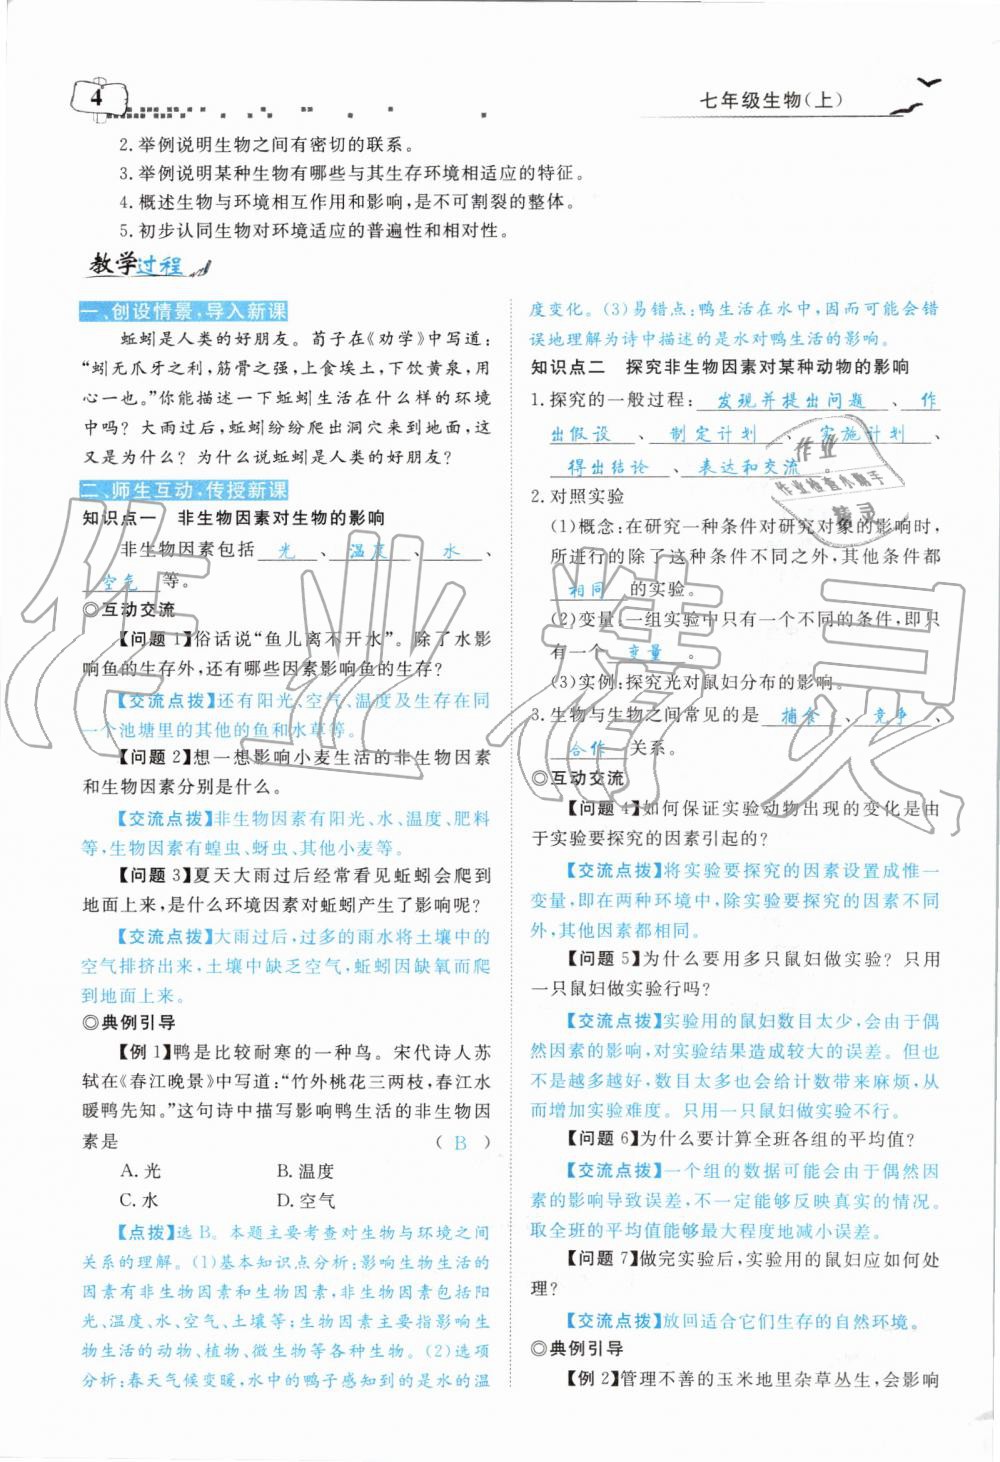 4
七年级生物(上)
2. 举例说明生物之间有密切的联系。
3. 举例说明某种生物有哪些与其生存环境相适应的特征。
4. 概述生物与环境相互作用和影响,是不可割裂的整体。
5. 初步认同生物对环境适应的普遍性和相对性。
教学过程
一、创设情景,导入新课
蚯蚓是人类的好朋友。荀子在《劝学》中写道:
“蚓无爪牙之利,筋骨之强,上食埃土,下饮黄泉,用
心一也。”你能描述一下蚯蚓生活在什么样的环境
中吗? 大雨过后,蚯蚓纷纷爬出洞穴来到地面,这
又是为什么? 为什么说蚯蚓是人类的好朋友?
二、师生互动,传授新课
知识点一 非生物因素对生物的影响
非生物因素包括 光 、 温度 、 水 、
空气 等。
◎互动交流
【问题 1】俗话说“鱼儿离不开水”。除了水影
响鱼的生存外,还有哪些因素影响鱼的生存?
【交流点拨】还有阳光、空气、温度及生存在同
一个池塘里的其他的鱼和水草等。
【问题 2】想一想影响小麦生活的非生物因素
和生物因素分别是什么。
【交流点拨】非生物因素有阳光、水、温度、肥料
等,生物因素有蝗虫、蚜虫、其他小麦等。
【问题 3】夏天大雨过后经常看见蚯蚓会爬到
地面上来,是什么环境因素对蚯蚓产生了影响呢?
【交流点拨】大雨过后,过多的雨水将土壤中的
空气排挤出来,土壤中缺乏空气,蚯蚓因缺氧而爬
到地面上来。
◎典例引导
【例 1】鸭是比较耐寒的一种鸟。宋代诗人苏
轼在《春江晚景》中写道:“竹外桃花三两枝,春江水
暖鸭先知。”这句诗中描写影响鸭生活的非生物因
素是 ( B )
A. 光 B. 温度
C. 水 D. 空气
【点拨】选 B。本题主要考查对生物与环境之间
关系的理解。(1)基本知识点分析:影响生物生活的
因素有非生物因素和生物因素,非生物因素包括阳
光、温度、水、空气、土壤等;生物因素是指影响生物
生活的动物、植物、微生物等各种生物。(2)选项
分析:春天气候变暖,水中的鸭子感知到的是水的温
度变化。(3)易错点:鸭生活在水中,因而可能会错
误地理解为诗中描述的是水对鸭生活的影响。
知识点二 探究非生物因素对某种动物的影响
1. 探究的一般过程: 发现并提出问题 、 作
出假设 、 制定计划 、 实施计划 、
得出结论 、 表达和交流 。
2. 对照实验
(1)概念:在研究一种条件对研究对象的影响时,
所进行的除了这种条件不同之外,其他条件都
相同 的实验。
(2)变量:一组实验中只有一个不同的条件,即只
有一个 变量 。
(3)实例:探究光对鼠妇分布的影响。
3. 生物与生物之间常见的是 捕食 、 竞争 、
合作 关系。
◎互动交流
【问题 4】如何保证实验动物出现的变化是由
于实验要探究的因素引起的?
【交流点拨】将实验要探究的因素设置成惟一
变量,即在两种环境中,除实验要探究的因素不同
外,其他因素都相同。
【问题 5】为什么要用多只鼠妇做实验? 只用
一只鼠妇做实验行吗?
【交流点拨】实验用的鼠妇数目太少,会由于偶
然因素的影响,对实验结果造成较大的误差。但也
不是越多越好,数目太多会给计数带来麻烦,从
而增加实验难度。只用一只鼠妇做实验不行。
【问题 6】为什么要计算全班各组的平均值?
【交流点拨】一个组的数据可能会由于偶然因
素的影响导致误差,不一定能够反映真实的情况。
取全班的平均值能够最大程度地减小误差。
【问题 7】做完实验后,实验用的鼠妇应如何处
理?
【交流点拨】放回适合它们生存的自然环境。
◎典例引导
【例 2】管理不善的玉米地里杂草丛生,会影响
作业精灵
作业
作业检查小助手
精灵